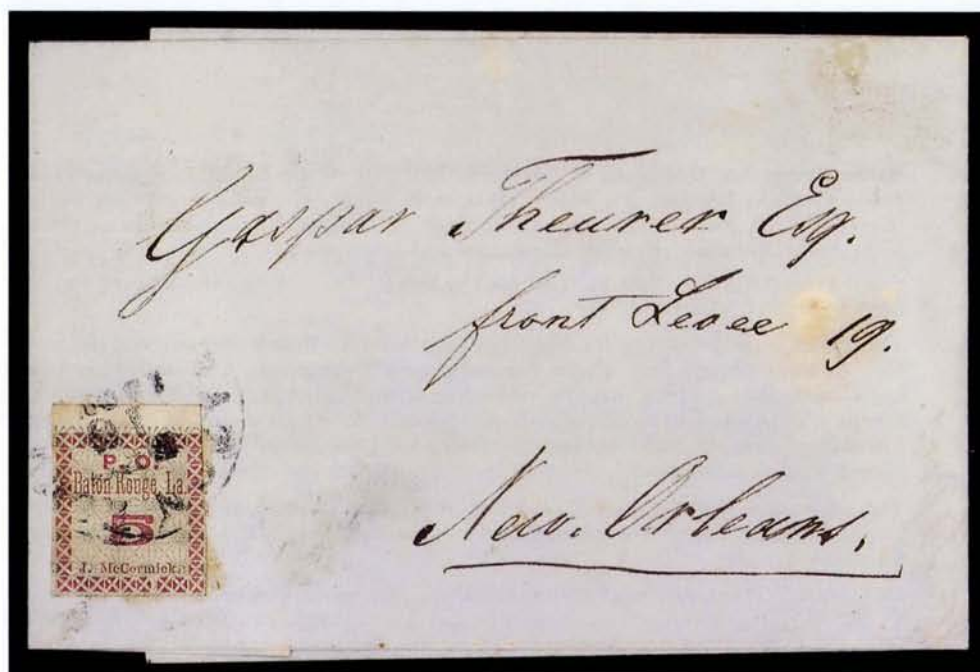 Gaspar Theurer Esq.
front Levee 19.
New. Orleans.
P. O.
Baton Rouge, La.
5
J. McCormick.